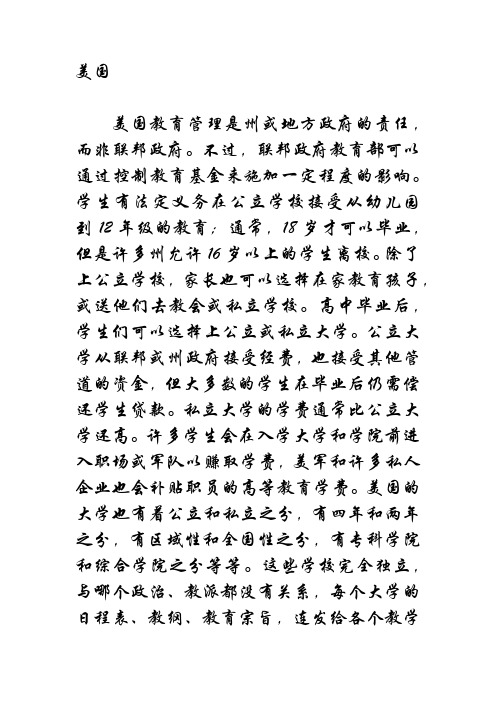 美国
美国教育管理是州或地方政府的责任，
而非联邦政府。不过，联邦政府教育部可以
通过控制教育基金来施加一定程度的影响。
学生有法定义务在公立学校接受从幼儿园
到12年级的教育；通常，18岁才可以毕业，
但是许多州允许16岁以上的学生离校。除了
上公立学校，家长也可以选择在家教育孩子，
或送他们去教会或私立学校。高中毕业后，
学生们可以选择上公立或私立大学。公立大
学从联邦或州政府接受经费，也接受其他管
道的资金，但大多数的学生在毕业后仍需偿
还学生贷款。私立大学的学费通常比公立大
学还高。许多学生会在入学大学和学院前进
入职场或军队以赚取学费，美军和许多私人
企业也会补贴职员的高等教育学费。美国的
大学也有着公立和私立之分，有四年和两年
之分，有区域性和全国性之分，有专科学院
和综合学院之分等等。这些学校完全独立，
与哪个政治、教派都没有关系，每个大学的
日程表、教纲、教育宗旨，连发给各个教学